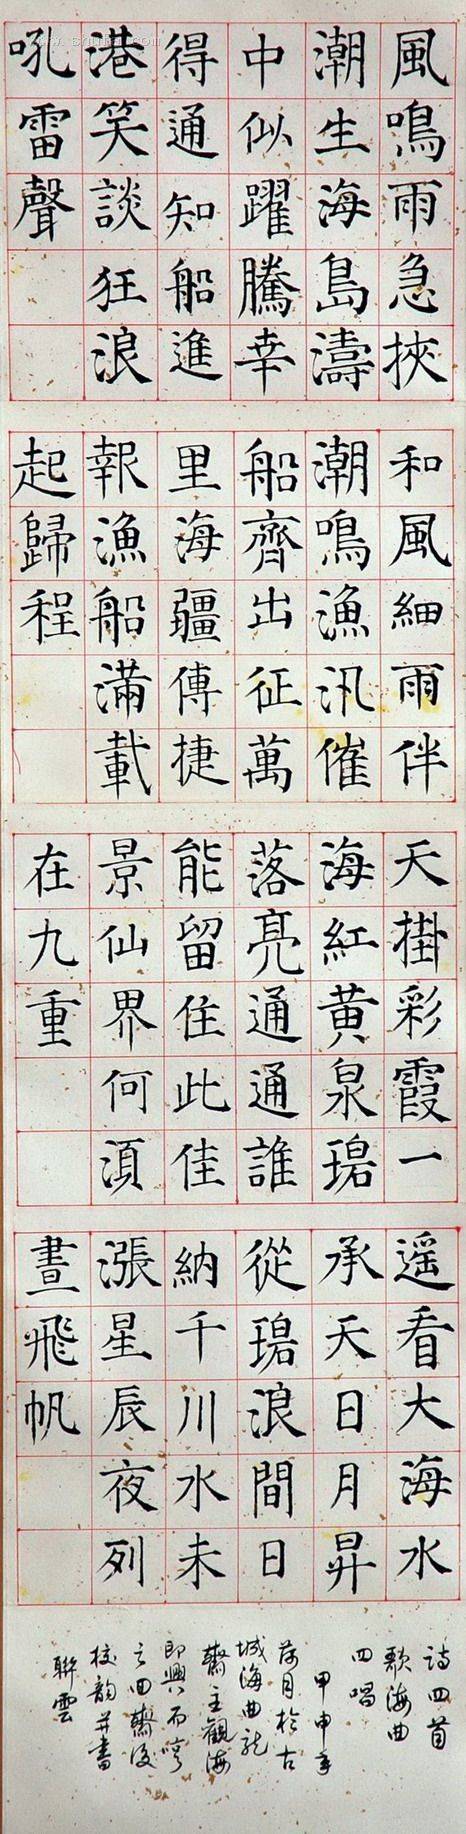 風鳴雨急挾
潮生海島濤
中似躍騰幸
得通知船進
港笑談狂浪
吼雷聲
和風細雨伴
潮鳴漁汛催
船齊出征萬
里海疆傳捷
報漁船滿載
起歸程
天掛彩霞一
海紅黃泉碧
落亮通通誰
能留住此佳
景仙界何須
在九重
遥看大海水
承天日月昇
從碧浪間日
納千川水未
漲星辰夜列
晝飛帆
詩四首
歌海曲
四唱
甲申年
荷月於古
城海曲龍
齋主觀海
即興而哼
之曲齋後
校韵并書
聯雲